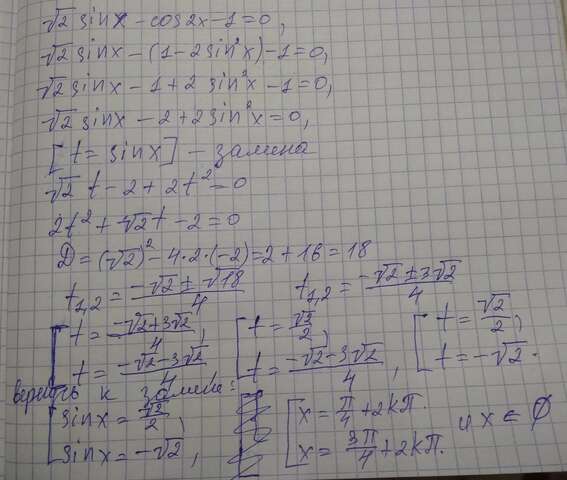 √2 sinx - cos2x - 1 = 0,
√2 sinx - (1 - 2sin²x) - 1 = 0,
√2 sinx - 1 + 2 sin²x - 1 = 0,
√2 sinx - 2 + 2sin²x = 0,
[t = sinx] - замена
√2 t - 2 + 2t² = 0
2t² + √2t - 2 = 0
D = (√2)² - 4·2·(-2) = 2 + 16 = 18
t₁,₂ = (-√2 ± √18)/4 t₁,₂ = (-√2 ± 3√2)/4
[ t = (-√2 + 3√2)/4, [ t = √2/2, [ t = √2/2,
t = (-√2 - 3√2)/4, t = (-√2 - 3√2)/4, t = -√2.
к замене:
[ sinx = √2/2, [ x = π/4 + 2kπ. и x ∈ ∅
sinx = -√2, x = 3π/4 + 2kπ.